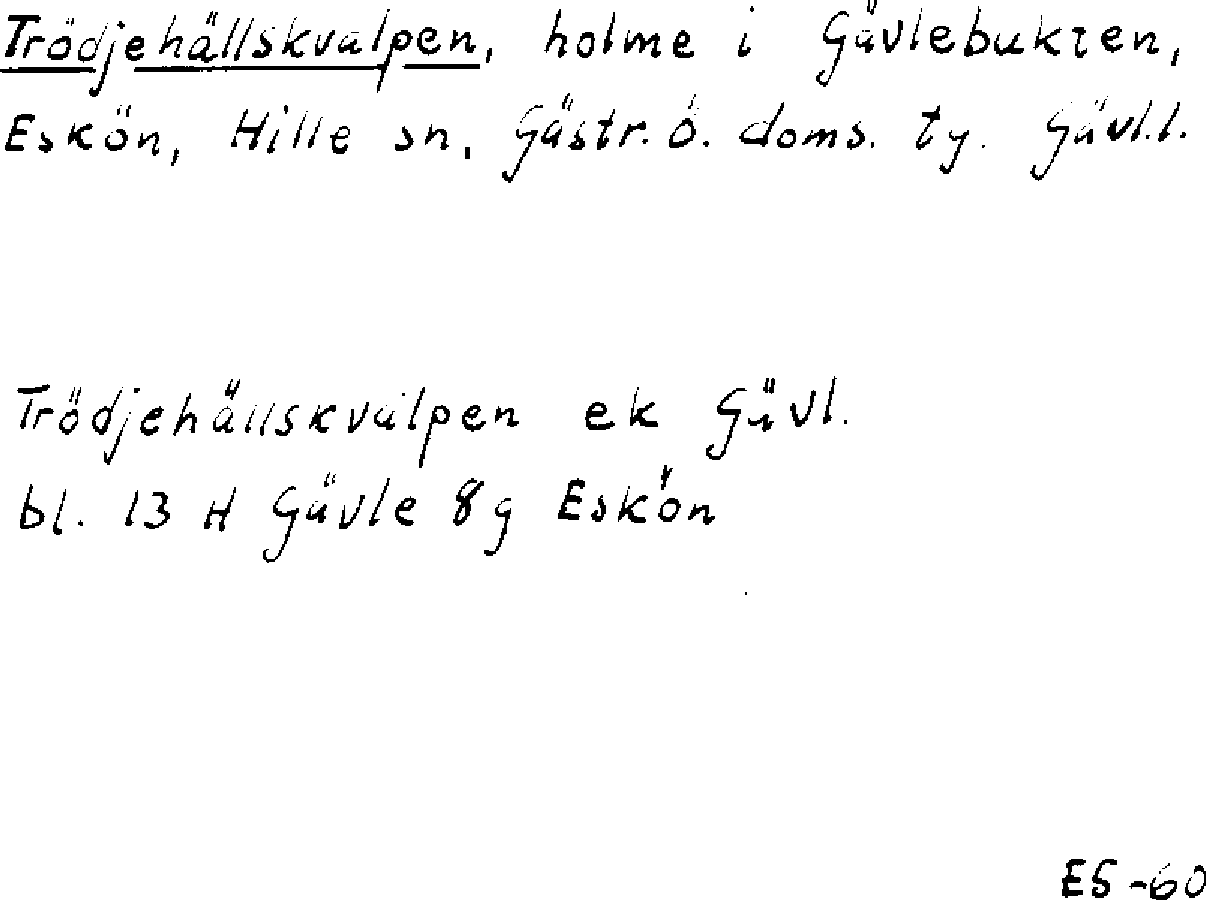 Trödjehällskvalpen, holme i Gävlebukten,
Eskön, Hille sn, Gästr. ö. doms. ty. Gävl.l.
Trödjehällskvalpen ek Gävl.
bl. 13 H Gävle 8g Eskön
ES-60